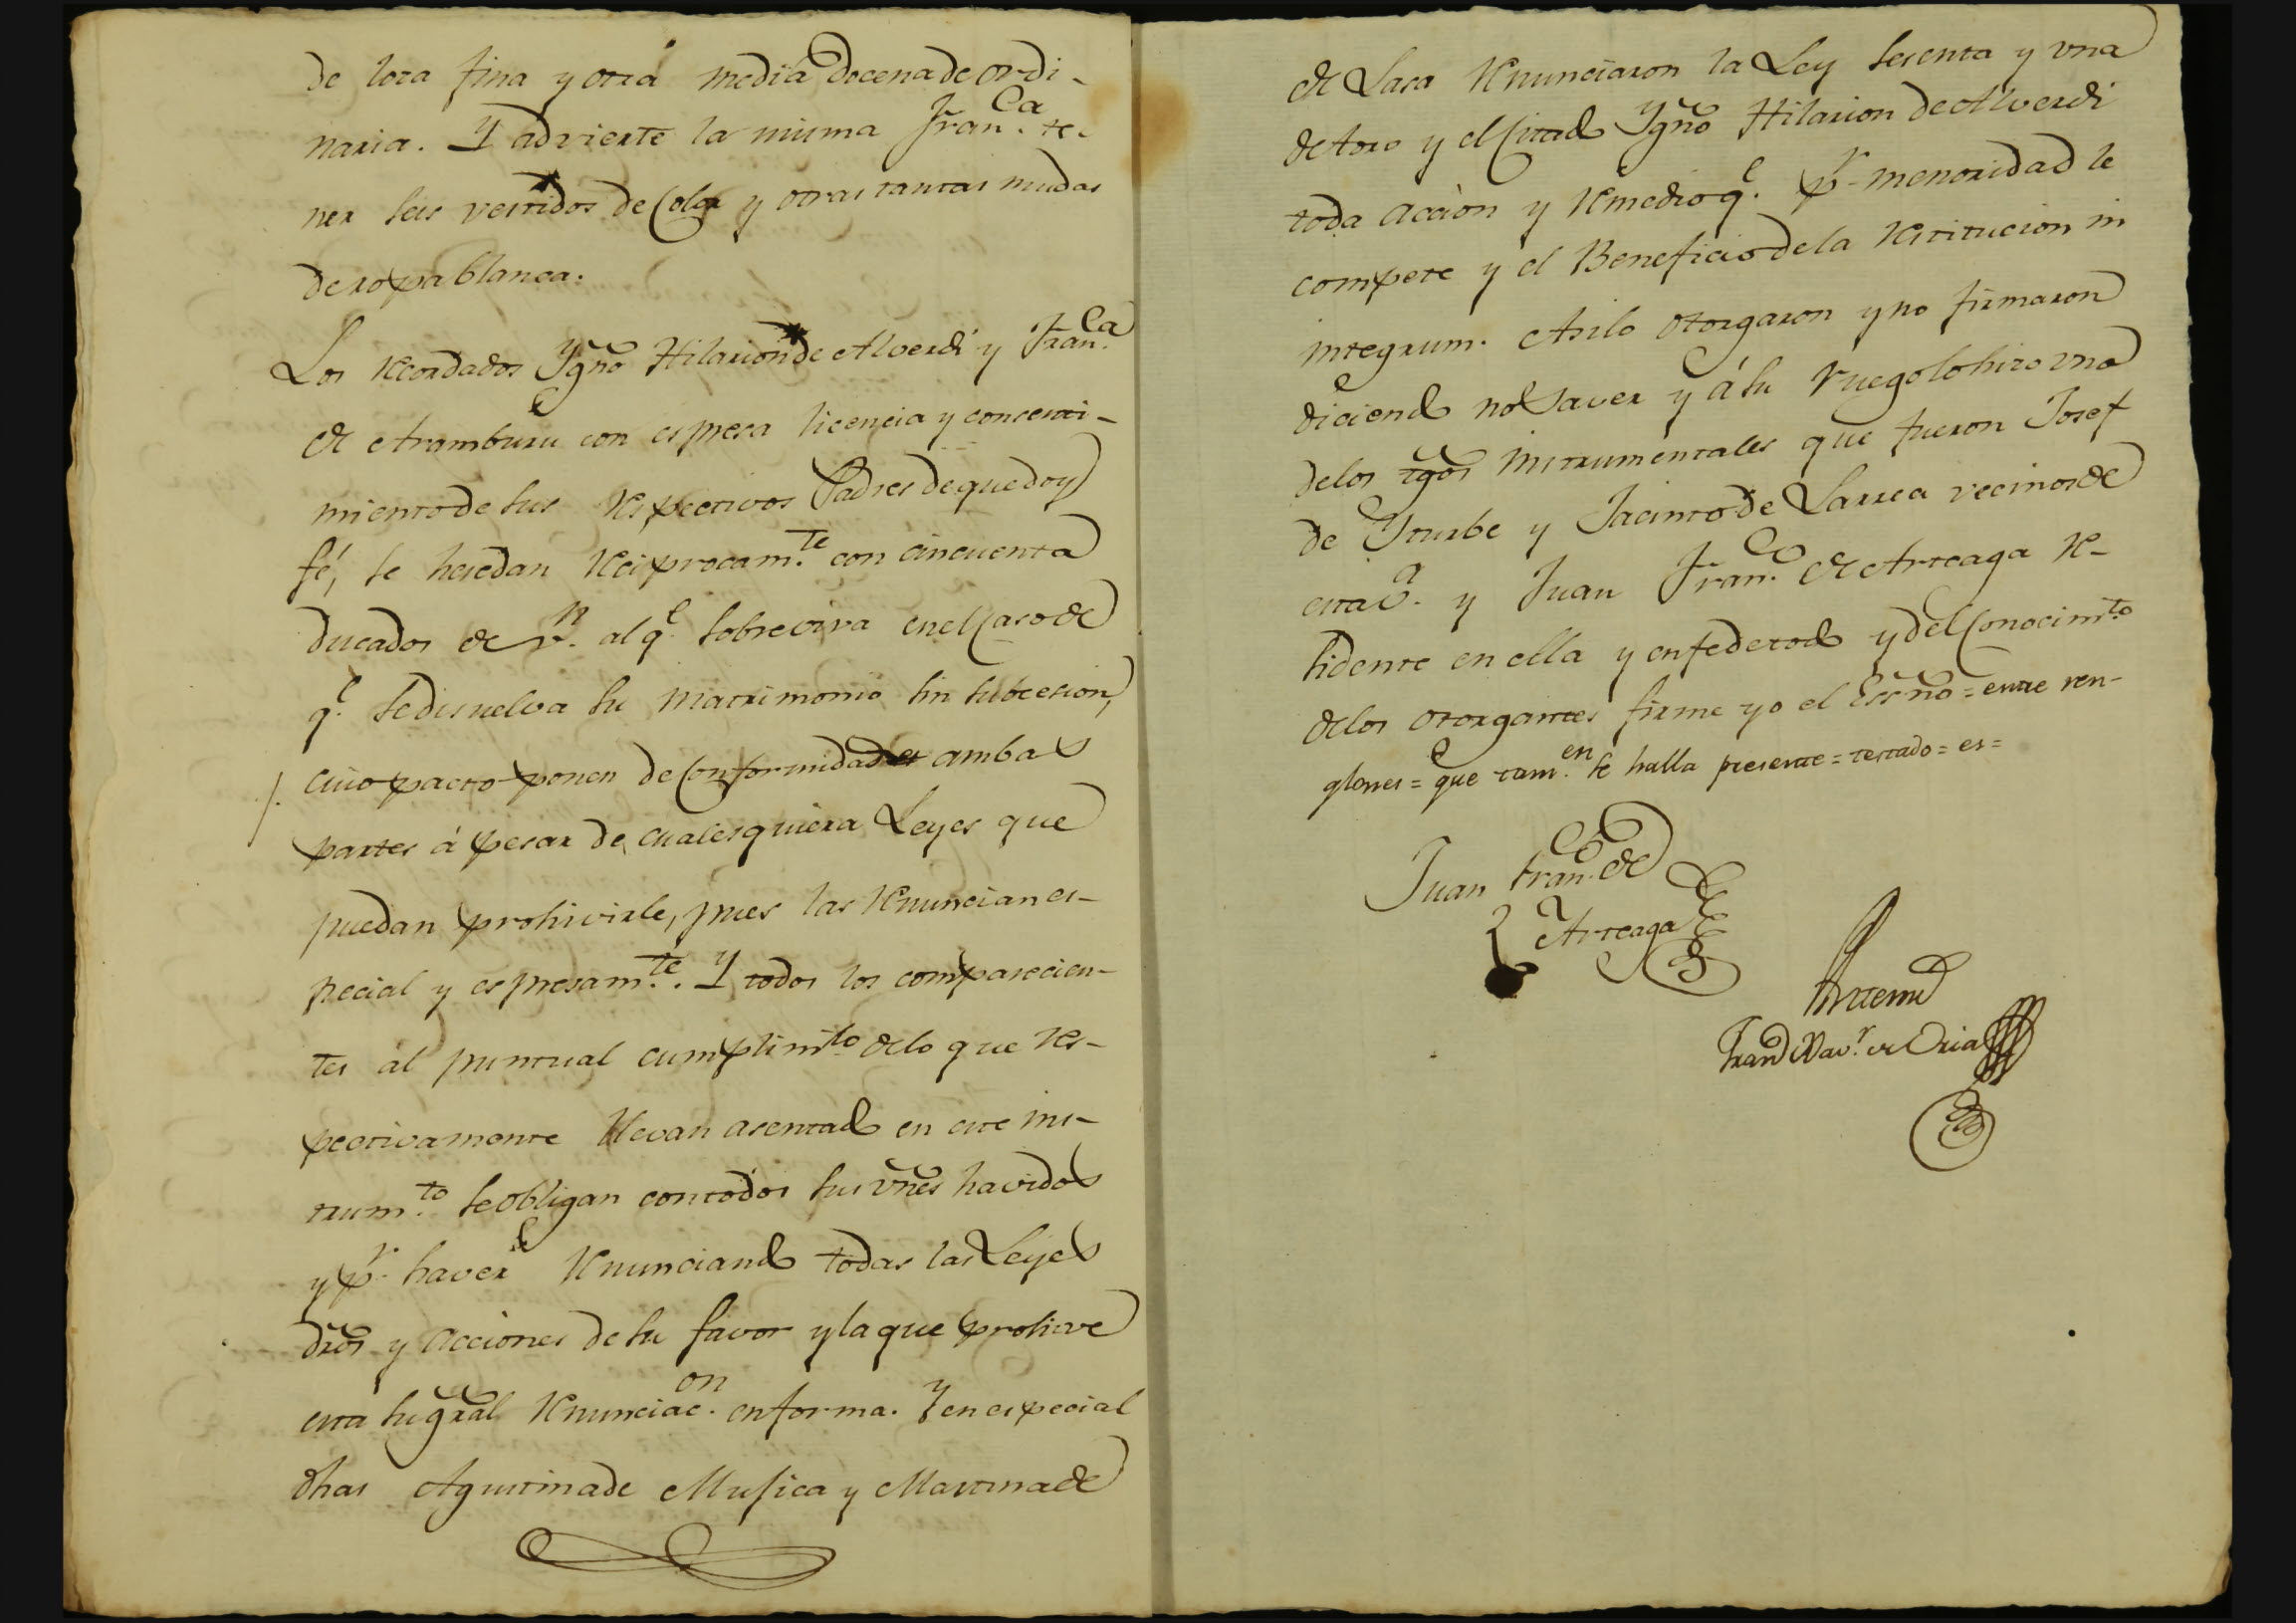 de loza fina y otra media docena de ordi-
naria. Y advierte la misma Fran.ca te-
ner seis vestidos de Color y otras tantas mudas
de ropa blanca.
Los recordados Ygño Hilarion de Alverdi y Fran.ca
de Aramburu con espresa licencia y consenti-
miento de sus respectivos Padres de que doy
fé, se heredan reciprocam.te con cincuenta
ducados de v.n al q.e sobreviva en el caso de
q.e se disuelva su Matrimonio sin subcesion,
cuio pacto ponen de Conformidad ambas
partes á pesar de cualesquiera Leyes que
puedan prohivirle, pues las renuncian es-
pecial y espresam.te. Y todos los comparecien-
tes al puntual cumplim.to de lo que res-
pectivamente llevan asentado en este ins-
trum.to se obligan con todos sus vñes havidos
y p.r haver renunciando todas las Leyes
dr̃os y acciones de su favor y la que prohive
esta su gr̃al renunciac.on en forma. Y en especial
dhas Agustina de Mugica y Martina de
de Lasa renunciaron la Ley sesenta y una
de toro y el Citado Ygño Hilarion de Alverdi
toda accion y remedio q.e p.r menoridad le
compete y el Beneficio de la restitucion in
integrum. Asi lo otorgaron y no firmaron
diciendo no saver y á su ruego lo hizo uno
de los tgõs instrumentales que fueron Josef
de Yturbe y Jacinto de Larrea vecinos de
esta V.a y Juan Fran.co de Arteaga re-
sidente en ella y en fe de todo y del Conocim.to
de los otorgantes firme yo el Ess̃no = entre ren-
glones = que tam.en se halla presente = testado = es =
Juan Fran.co de
Arteaga
Antemi
Fran.co Xav.r de Oria